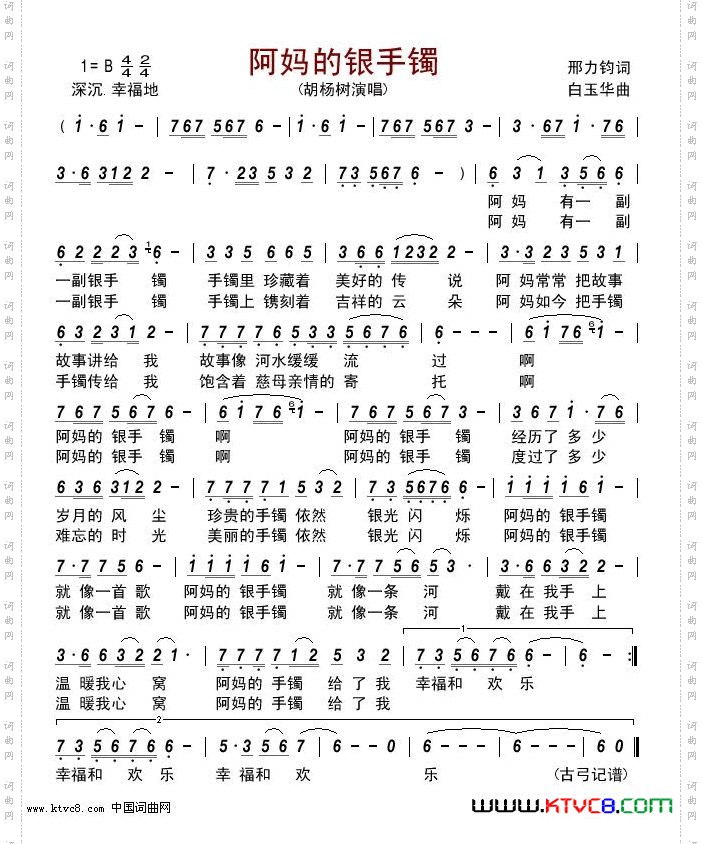 阿妈的银手镯
1=B 4/4 2/4
深沉.幸福地
(胡杨树演唱)
邢力钧词
白玉华曲
( i·6 i - | 767 567 6 - | i·6 i - | 767 567 3 - | 3·67 i·76 |
3·6 312 2 - | 7·23 5 3 2 | 7 3 567 6 - ) | 6 3 1 3 5 6 6 |
阿 妈 有一 副
阿 妈 有一 副
6 2 2 2 3 1 6 - | 3 3 5 6 6 5 | 3 6 6 1232 2 - | 3·3 2 3 5 3 1 |
一副银手 镯 手镯里 珍藏着 美好的 传 说 阿 妈常常 把故事
一副银手 镯 手镯上 镌刻着 吉祥的 云 朵 阿 妈如今 把手镯
6 3 2 3 1 2 - | 7 7 7 7 6 5 3 3 5 6 7 6 | 6 - - - | 6 i 7 6 6 i - |
故事讲给 我 故事像 河水缓缓 流 过 啊
手镯传给 我 饱含着 慈母亲情的 寄 托 啊
7 6 7 5 6 7 6 - | 6 i 7 6 6 i - | 7 6 7 5 6 7 3 - | 3 6 7 i·7 6 |
阿妈的 银手 镯 啊 阿妈的 银手 镯 经历了 多少
阿妈的 银手 镯 啊 阿妈的 银手 镯 度过了 多少
6 3 6 3 1 2 2 - | 7 7 7 7 1 5 3 2 | 7 3 5 6 7 6 6 - | i i i i 6 i - |
岁月的 风 尘 珍贵的手镯 依然 银光 闪 烁 阿妈的 银手镯
难忘的 时 光 美丽的手镯 依然 银光 闪 烁 阿妈的 银手镯
7·7 7 5 6 - | i i i i 6 i - | 7·7 7 5 6 5 3· | 3·3 6 7 6 5 |
就 像一首 歌 阿妈的 银手镯 就 像一条 河 戴 在 我手 上
就 像一首 歌 阿妈的 银手镯 就 像一条 河 戴 在 我手 上
3·6 6 3 2 2 1· | 7 7 7 7 1 2 5 3 2 | 1 7 3 5 6 7 6 6 - | 6 - - :||
温 暖我心 窝 阿妈的 手镯 给 了 我 幸福和 欢 乐
温 暖我心 窝 阿妈的 手镯 给 了 我
2
7 3 5 6 7 6 6 - | 5·3 5 7 7 6 - | 6 - - - | 6 - 6 0 ||
幸福和 欢 乐 幸 福和 欢 乐 (古弓记谱)
www.ktvc8.com 中国词曲网
WWW.KTVC8.COM
词曲网